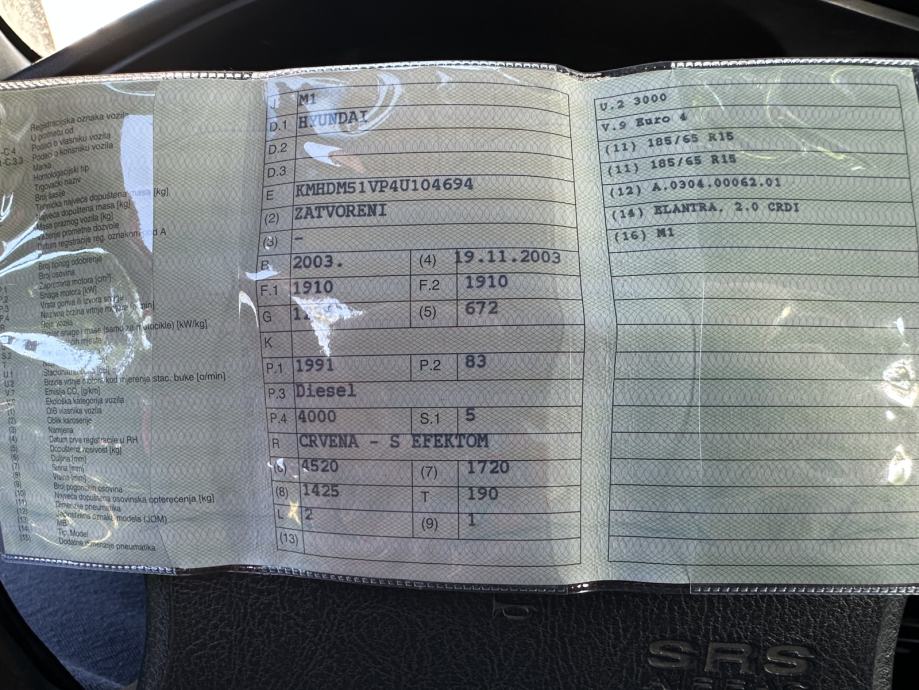 Registracijska oznaka vozila
U prometu od
-C.4 Podaci o vlasniku vozila
1-C.3.3 Podaci o korisniku vozila
Marka
Homologacijski tip
Trgovački naziv
Broj šasije
Tehnička najveća dopuštena masa [kg]
Najveća dopuštena masa [kg]
Masa praznog vozila [kg]
prometne dozvole
Datum registracije reg. oznakom od A
Broj tipnog odobrenja
Broj osovina
P.1 Zapremina motora [cm³]
P.2 Snaga motora [kW]
P.3 Vrsta goriva ili izvora snage
P.4
snage i mase (samo za motocikle) [kW/kg]
U.1
U.2 kod mjerenja stac. buke [o/min]
V.7 Emisija CO₂ [g/km]
V.9 Ekološka kategorija vozila
(1) OIB vlasnika vozila
(2) Oblik karoserije
(3) Namjena
(4) Datum prve registracije u RH
(5) Dopuštena nosivost [kg]
(6) Duljina [mm]
(7) Širina [mm]
(8) Visina [mm]
(9) Broj pogonskih osovina
(10) Najveća dopuštena osovinska opterećenja [kg]
(11) Dimenzije pneumatika
(12) Jedinstvena oznaka modela (JOM)
(13) MB
(14) Tip, Model
(15) Dodatne dimenzije pneumatika
J M1
D.1 HYUNDAI
D.2
D.3
E KMHDM51VP4U104694
(2) ZATVORENI
(3) –
B 2003. (4) 19.11.2003
F.1 1910 F.2 1910
G (5) 672
K
P.1 1991 P.2 83
P.3 Diesel
P.4 4000 S.1 5
R CRVENA - S EFEKTOM
(6) 4520 (7) 1720
(8) 1425 T 190
L 2 (9) 1
(13)
U.2 3000
V.9 Euro 4
(11) 185/65 R15
(11) 185/65 R15
(12) A.0304.00062.01
(14) ELANTRA, 2.0 CRDI
(16) M1
SRS